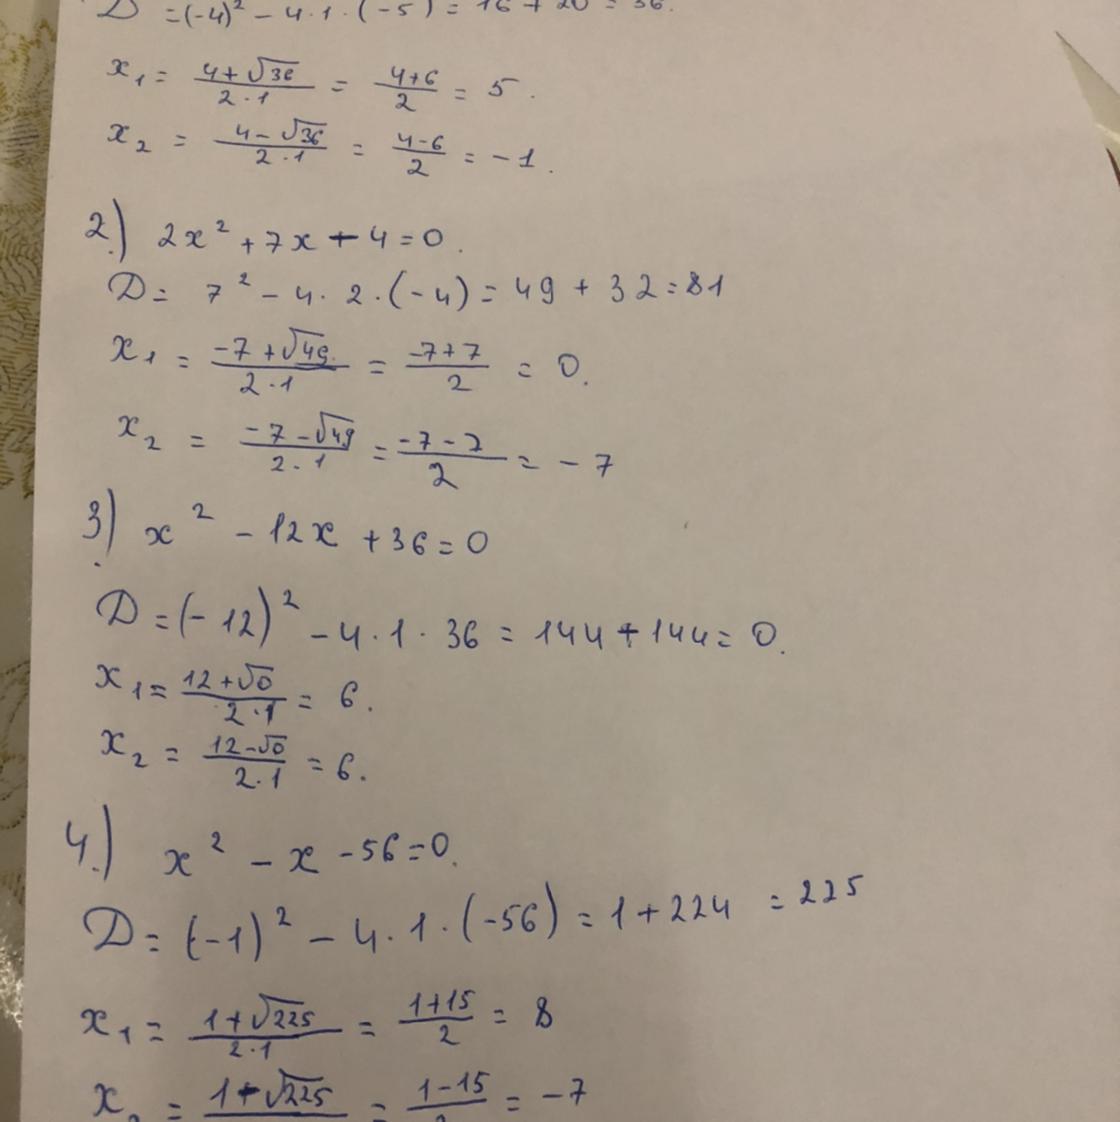 D = (-4)² - 4·1·(-5) = 16 + 20 = 36.
x₁ = (4+√36)/(2·1) = (4+6)/2 = 5.
x₂ = (4-√36)/(2·1) = (4-6)/2 = -1.
2.) 2x² + 7x - 4 = 0.
D = 7² - 4·2·(-4) = 49 + 32 = 81
x₁ = (-7+√49)/(2·1) = (-7+7)/2 = 0.
x₂ = (-7-√49)/(2·1) = (-7-7)/2 = -7
3) x² - 12x + 36 = 0
D = (-12)² - 4·1·36 = 144 + 144 = 0.
x₁ = (12+√0)/(2·1) = 6.
x₂ = (12-√0)/(2·1) = 6.
4.) x² - x - 56 = 0.
D = (-1)² - 4·1·(-56) = 1 + 224 = 225
x₁ = (1+√225)/(2·1) = (1+15)/2 = 8
x₂ = (1-√225)/ = (1-15)/2 = -7